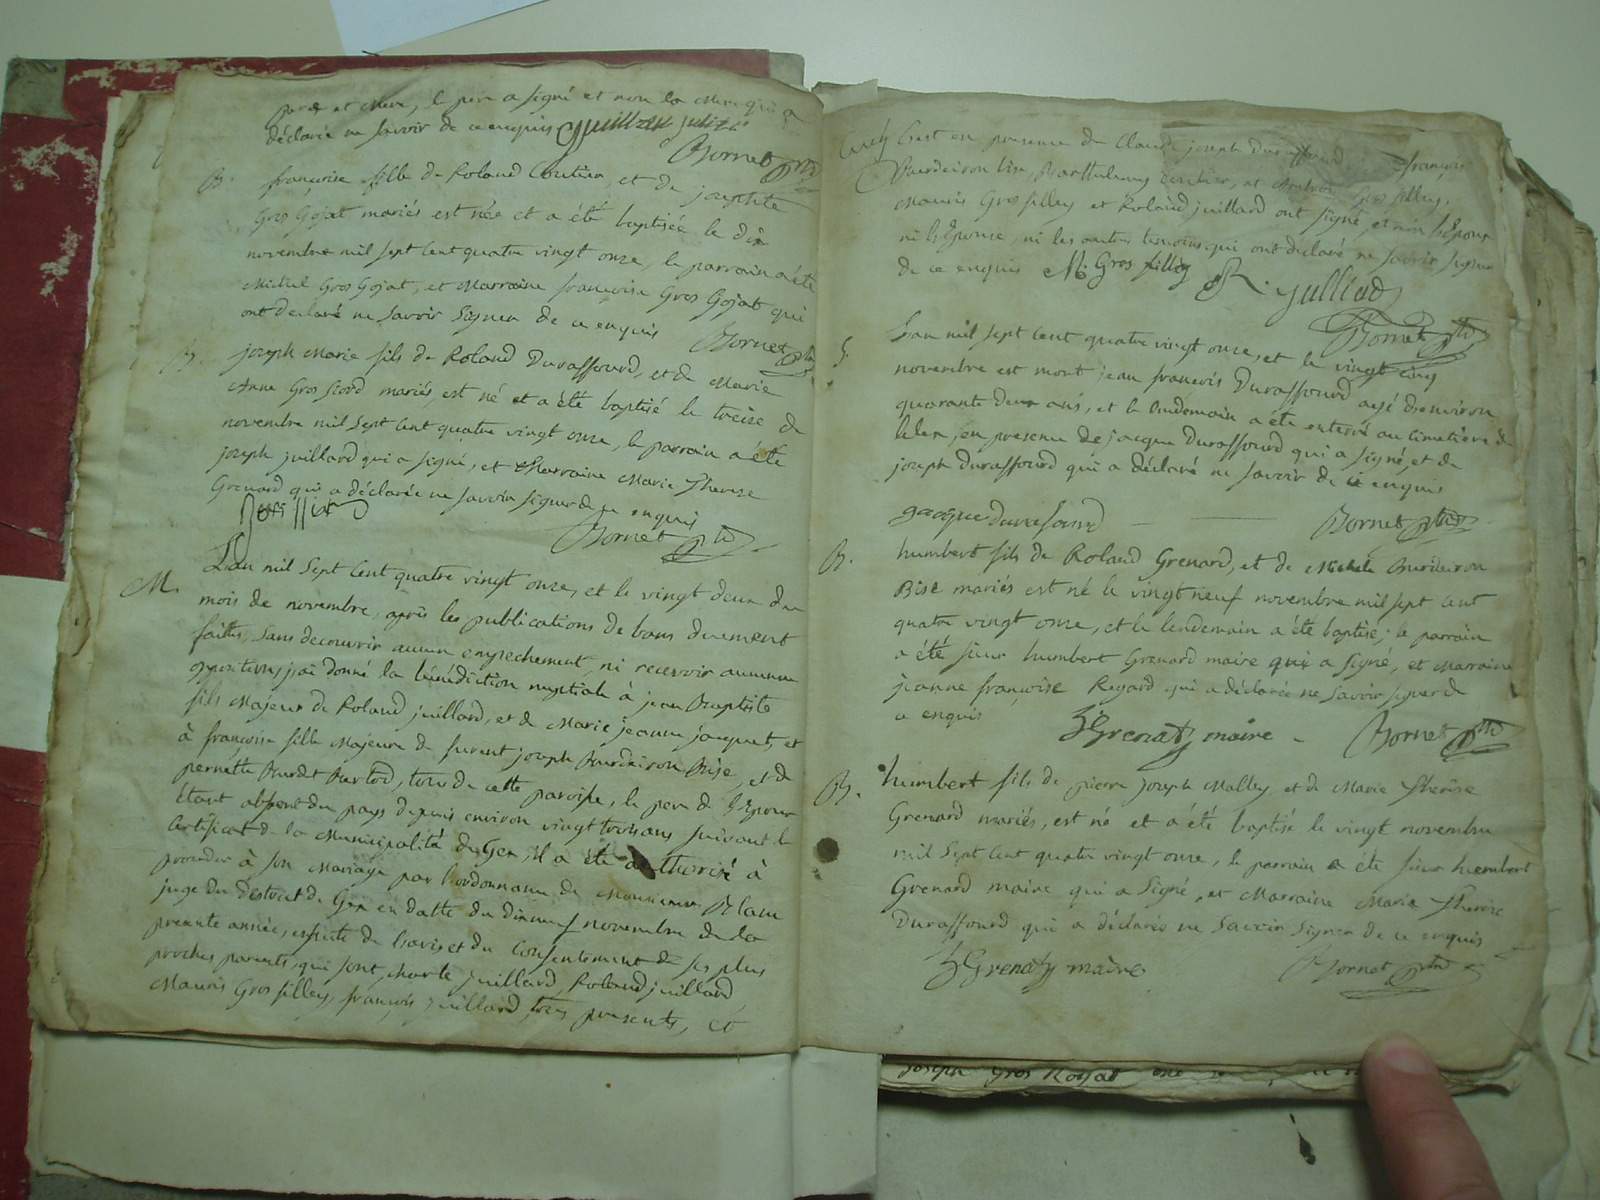 pere et Mere, le pere a signé et non la Mere qui a
déclarée ne savoir de ce enquis
Bornet
B. françoise fille de Roland Coutier, et de josephte
Gros Gojat mariés est née et a été baptisée le dix
novembre mil sept cent quatre vingt onze, le parrain a été
Michel Gros Gojat, et Marraine françoise Gros Gojat qui
ont declaré ne savoir signer de ce enquis Bornet
B. joseph Marie fils de Roland Duraffourd, et de Marie
Anne Gros mariés, est né et a été baptisé le treize de
novembre mil sept cent quatre vingt onze, le parrain a été
joseph juillard qui a signé, et Marraine Marie Therese
Grenard qui a déclarée ne savoir signer de ce enquis
Bornet
M. L'an mil sept cent quatre vingt onze, et le vingt deux du
mois de novembre, après les publications de bans duement
faittes, sans decouvrir aucun empechement, ni recevoir aucune
opposition, j'ai donné la bénédiction nuptiale à jean Baptiste
fils Majeur de Roland juillard, et de Marie jeanne jacquet, et
à françoise fille Majeure de furent joseph Burdeiron Bise, et de
pernette Burdet, tous de cette paroisse, le pere de l'Epoux
étant absent du pays depuis environ vingt trois ans suivant le
Certificat de la Municipalité de Gex, il a été authorisé à
proceder à son Mariage par l'ordonnance de Monsieur Blanc
juge du district de Gex en datte du dixneuf novembre de la
presente année, ensuite de l'avis et du Consentement de ses plus
proches parents, qui sont, juillard, Roland juillard,
Mauris Gros filley, françois juillard, tous presents, et
C'est en presence de Claude joseph Duraffourd françois
Burdeiron Bise, Barthelemy et Gros filley,
Mauris Gros filley et Roland juillard ont signé, et non l'Epoux
ni l'Epouse, ni les autres temoins qui ont declaré ne savoir signer
de ce enquis M. Gros filley R. julliard
Bornet
S. L'an mil sept cent quatre vingt onze, et le vingt cinq
novembre est mort jean françois Duraffourd agé d'environ
quarante deux ans, et le lendemain a été enterré au cimetière de
Lelex, en presence de jacque Duraffourd qui a signé, et de
joseph Duraffourd qui a déclaré ne savoir de ce enquis
Bornet
B. humbert fils de Roland Grenard, et de Michele Burdeiron
Bise mariés est né le vingt neuf novembre mil sept cent
quatre vingt onze, et le lendemain a été baptisé; le parrain
a été sieur humbert Grenard maire qui a signé, et Marraine
jeanne françoise Regard qui a déclarée ne savoir signer de
ce enquis
h Grenard maire - Bornet
B. humbert fils de pierre joseph Malley et de Marie Therèse
Grenard mariés, est né et a été baptisé le vingt novembre
mil sept cent quatre vingt onze, le parrain a été sieur humbert
Grenard maire qui a signé, et Marraine Marie Therèse
Duraffourd qui a déclarée ne savoir signer de ce enquis
h Grenard maire Bornet
joseph Gros